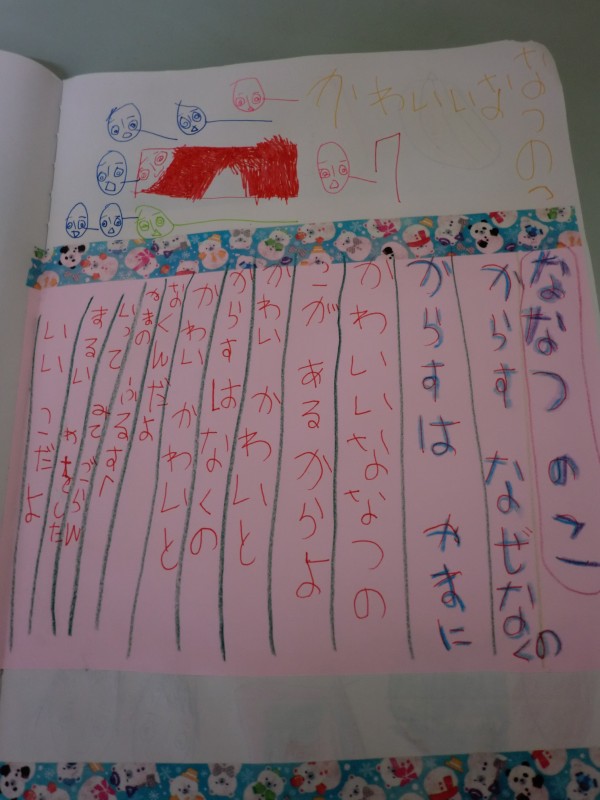 かわいいな
なつのこ
7
ななつ のこ
からす なぜなくの
からすは やまに
かわいいななつの
こが あるからよ
かわい かわいと
からすはなくの
かわい かわいと
なくんだよ
やまの ふるすへ
いって みてごらん
まるい めをした
いい こだよ